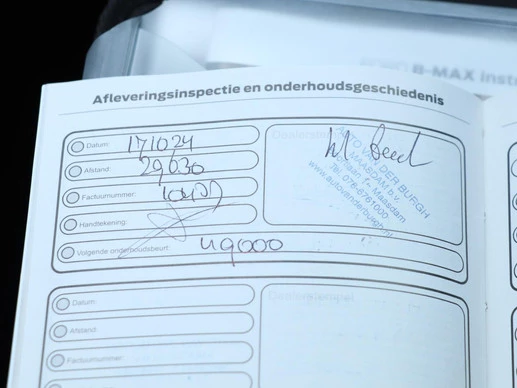 B-MAX inst
Afleveringsinspectie en onderhoudsgeschiedenis
Datum: 171024
Afstand: 29630
Factuurnummer:
Handtekening:
Volgende onderhoudsbeurt: 49000
AUTO VAN DER BURGH
MAASDAM b.v.
Maasdam
www.autovanderburgh.nl
Datum:
Afstand:
Factuurnummer:
Dealerstempel